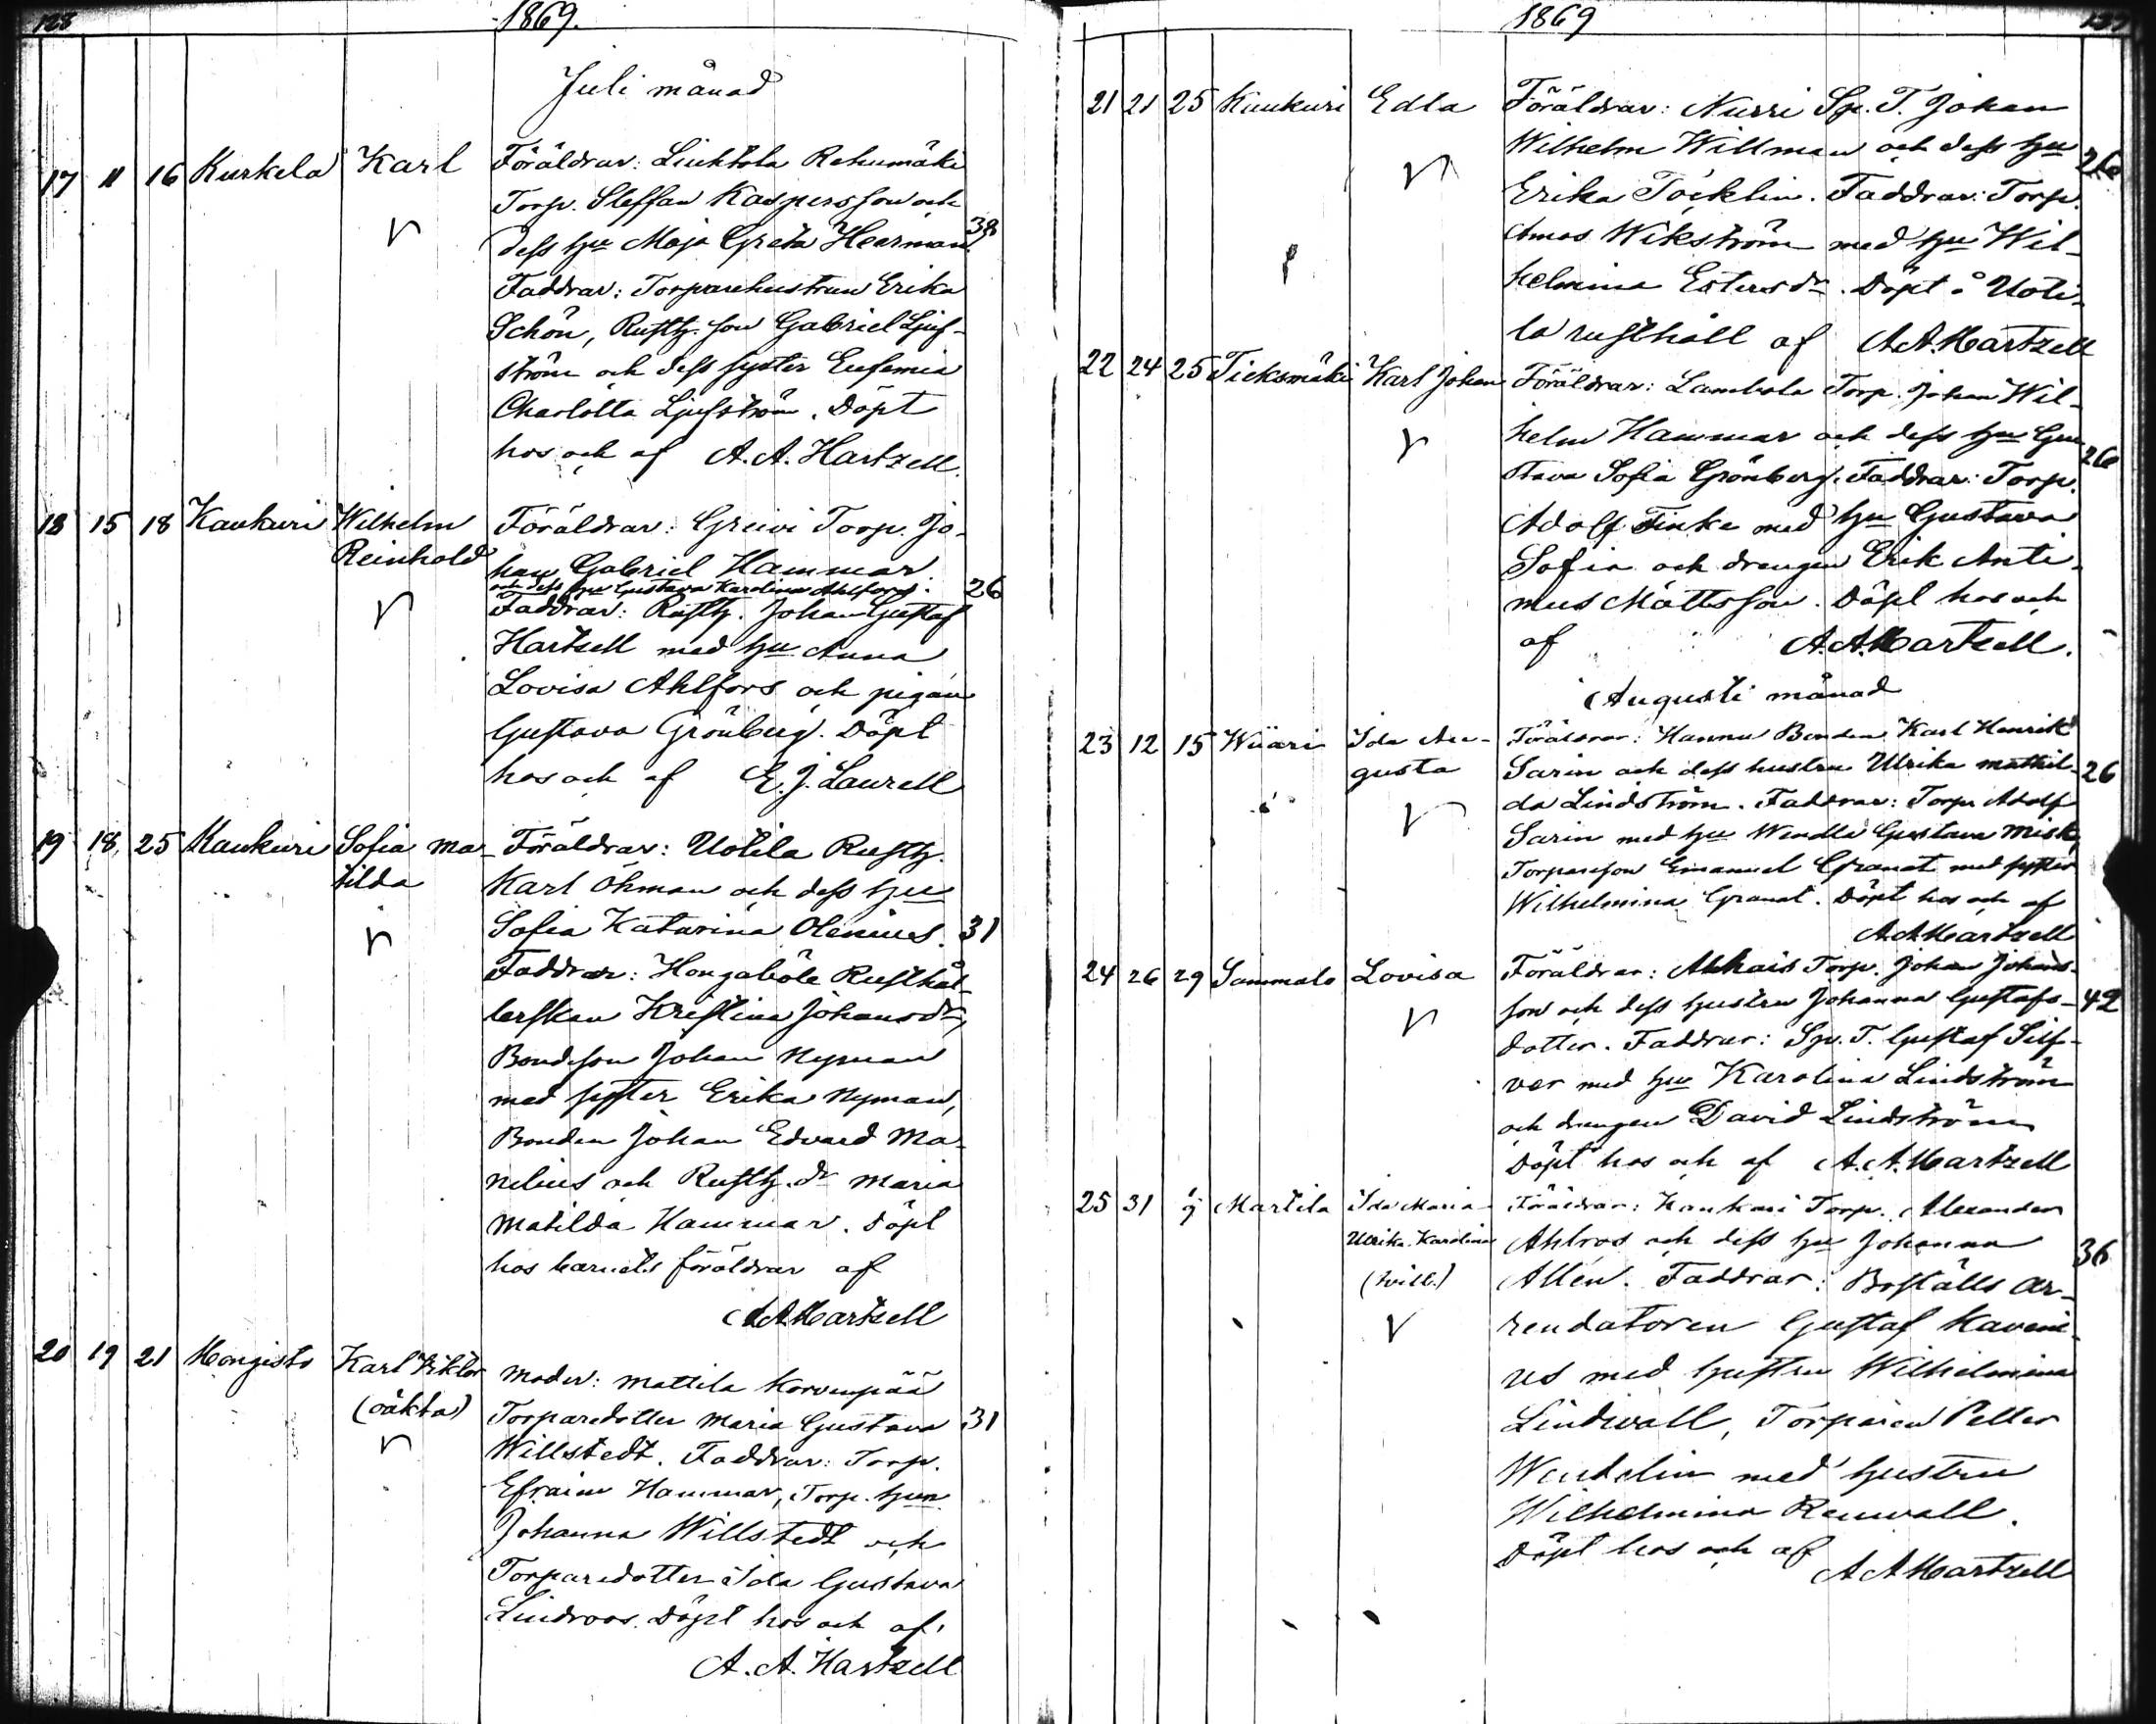 128 1869.
Juli månad
17 11 16 Kurkela Karl Föräldrar: Liuhtola Rahumäki
Torp. Steffan Kaspersson och
dess hu Maja Greta Hearman. 38
Faddrar: Torparehustrun Erika
Schön, Rusth. son Gabriel Ljuf-
ström och dess syster Eufemia
Charlotta Ljufström. Döpt
hos och af A. A. Hartzell.
18 15 18 Kaukuri Wilhelm Föräldrar: Greivi Torp. Jo-
Reinhold han Gabriel Hammar
och dess hu Gustava Karolina Ahlfors. 26
Faddrar: Rusth. Johan Gustaf
Hartzell med hu Anna
Lovisa Ahlfors och pigan
Gustava Grönberg. Döpt
hos och af E. J. Laurell
19 18 25 Kaukuri Sofia Ma- Föräldrar: Uotila Rusth.
tilda Karl Öhman och dess hu
Sofia Katarina Olenius. 31
Faddrar: Hongaböle Rusthål-
lerskan Kristina Johansdr,
Bondeson Johan Nyman
med syster Erika Nyman,
Bonden Johan Edvard Ma-
nelius och Rusth. dr Maria
Matilda Hammar. Döpt
hos barnets föräldrar af
A A Hartzell
20 19 21 Hongisto Karl Viktor Moder: Mattila Korvenpää
(oäkta) Torparedotter Maria Gustava 31
Willstedt. Faddrar: Torp.
Efraim Hammar, Torp. hun
Johanna Willstedt och
Torparedotter Ida Gustava
Lindroos. Döpt hos och af
A. A. Hartzell
1869
21 21 25 Kaukuri Edla Föräldrar: Nurri Sp. T. Johan
Wilhelm Willman och dess hu 26
Erika Töcklin. Faddrar: Torp.
Amos Wikström med hu Wil-
helmina Estersdr. Döpt å Uoti-
la rusthåll af A A. Hartzell
22 24 25 Tieksmäki Karl Johan Föräldrar: Lambola Torp. Johan Wil-
helm Hammar och dess hu Gu- 26
stava Sofia Grönberg. Faddrar: Torp.
Adolf Finke med hu Gustava
Sofia och drengen Erik Anti-
mus Mattsson. Döpt hos och
af A. A. Hartzell.
Augusti månad
23 12 15 Wiiari Ida Au- Föräldrar: Hannu Bonden Karl Henrik
gusta Sarin och dess hustru Ulrika Mathil- 26
da Lindström. Faddrar: Torp. Adolf
Sarin med hu Wendla Gustava Misk,
Torpareson Emanuel Granat med syster
Wilhelmina Granat. Döpt hos och af
A A Hartzell
24 26 29 Sammalo Lovisa Föräldrar: Ahkais Torp. Johan Johans-
son och dess hustru Johanna Gustafs- 42
dotter. Faddrar: Sp. T. Gustaf Silf-
ver med hu Karolina Lindström
och drengen David Lindström
Döpt hos och af A. A. Hartzell
25 31 9 Martila Ida Maria Föräldrar: Kaukari Torp. Alexander
Ulrika Karolina Ahlros och dess hu Johanna 36
(tvill.) Allén. Faddrar: Boställs ar-
rendatoren Gustaf Haveni-
us med hustru Wilhelmina
Lindwall, Torparen Petter
Wendelin med hustru
Wilhelmina Renwall.
Döpt hos och af
A A Hartzell